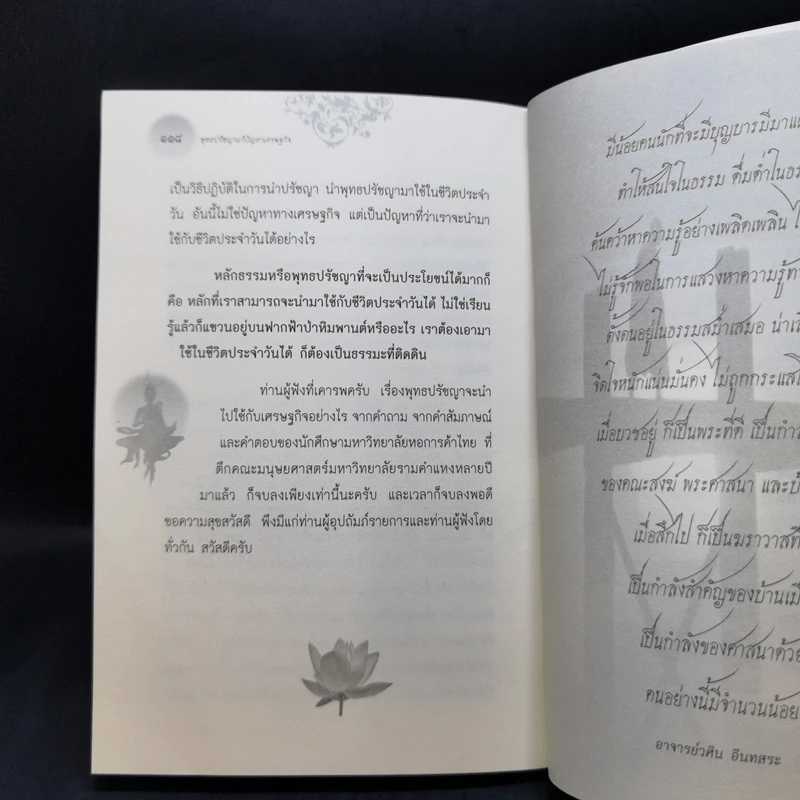 ๑๑๘
พุทธปรัชญาแก้ปัญหาเศรษฐกิจ
เป็นวิธีปฏิบัติในการนำปรัชญา นำพุทธปรัชญามาใช้ในชีวิตประจำ
วัน อันนี้ไม่ใช่ปัญหาทางเศรษฐกิจ แต่เป็นปัญหาที่ว่าเราจะนำมา
ใช้กับชีวิตประจำวันได้อย่างไร
หลักธรรมหรือพุทธปรัชญาที่จะเป็นประโยชน์ได้มากก็
คือ หลักที่เราสามารถจะนำมาใช้กับชีวิตประจำวันได้ ไม่ใช่เรียน
รู้แล้วก็แขวนอยู่บนฟากฟ้าป่าหิมพานต์หรืออะไร เราต้องเอามา
ใช้ในชีวิตประจำวันได้ ก็ต้องเป็นธรรมะที่ติดดิน
ท่านผู้ฟังที่เคารพครับ เรื่องพุทธปรัชญาจะนำ
ไปใช้กับเศรษฐกิจอย่างไร จากคำถาม จากคำสัมภาษณ์
และคำตอบของนักศึกษามหาวิทยาลัยหอการค้าไทย ที่
ตึกคณะมนุษยศาสตร์มหาวิทยาลัยรามคำแหงหลายปี
มาแล้ว ก็จบลงเพียงเท่านี้นะครับ และเวลาก็จบลงพอดี
ขอความสุขสวัสดี พึงมีแก่ท่านผู้อุปถัมภ์รายการและท่านผู้ฟังโดย
ทั่วกัน สวัสดีครับ
มีน้อยคนนักที่จะมีบุญบารมีมาแ
ทำให้สนใจในธรรม ดื่มด่ำในธร
ค้นคว้าหาความรู้อย่างเพลิดเพลิน
ไม่รู้จักพอในการแสวงหาความรู้ทา
ตั้งตนอยู่ในธรรมสม่ำเสมอ น่าเลื
จิตใจหนักแน่นมั่นคง ไม่ถูกกระแสโ
เมื่อบวชอยู่ ก็เป็นพระที่ดี เป็นกำ
ของคณะสงฆ์ พระศาสนา และบ้
เมื่อสึกไป ก็เป็นฆราวาสที
เป็นกำลังสำคัญของบ้านเมื
เป็นกำลังของศาสนาด้วย
คนอย่างนี้มีจำนวนน้อย
อาจารย์วศิน อินทสระ